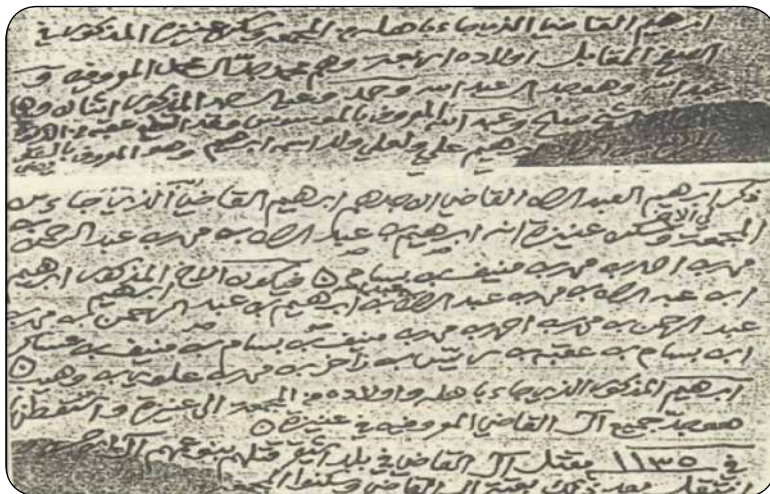 ابرهيم القاضي الذي جاء باهله من المجمعه وسكن عنيزه المذكور في
المقابل اولاده اربعة وهم محمد جد آل محمد المعروفه و
عبد الله وهو جد العبد الله وحمد وعبد الله المذكور اثنان وهما
صالح وعبد الله المعروف
ابرهيم علي ولعلي ولد اسمه ابرهيم وهو المعروف
ذكر ابرهيم العبد الله القاضي ان جدهم ابرهيم القاضي الذي جاء من
المجمعة وسكن عنيزة انه ابرهيم بن عبد الله بن محمد بن عبد الرحمن بن
محمد بن احمد بن محمد بن منيف بن بسام ٥ فيكون الاخ المذكور ابرهيم
ابن عبد الله بن محمد بن عبد الله بن ابرهيم بن عبد الرحمن بن محمد بن
عبد الرحمن بن محمد بن احمد بن محمد بن منيف بن بسام بن منيف بن عساكر
ابن بسام بن عقبه بن ريس بن زاخر بن محمد بن علوي بن وهيب ٥
ابرهيم المذكور الذي جاء باهله واولاده من المجمعه الى عنيزة واستوطنها
هو جد جميع آل القاضي المعروفه في عنيزه ٥
في ١١٣٥ مقتل آل القاضي في بلد اشيقر قتلهم بنو عمهم
انتقل بعد ذلك بقية آل القاضي وسكنوا المجمعه